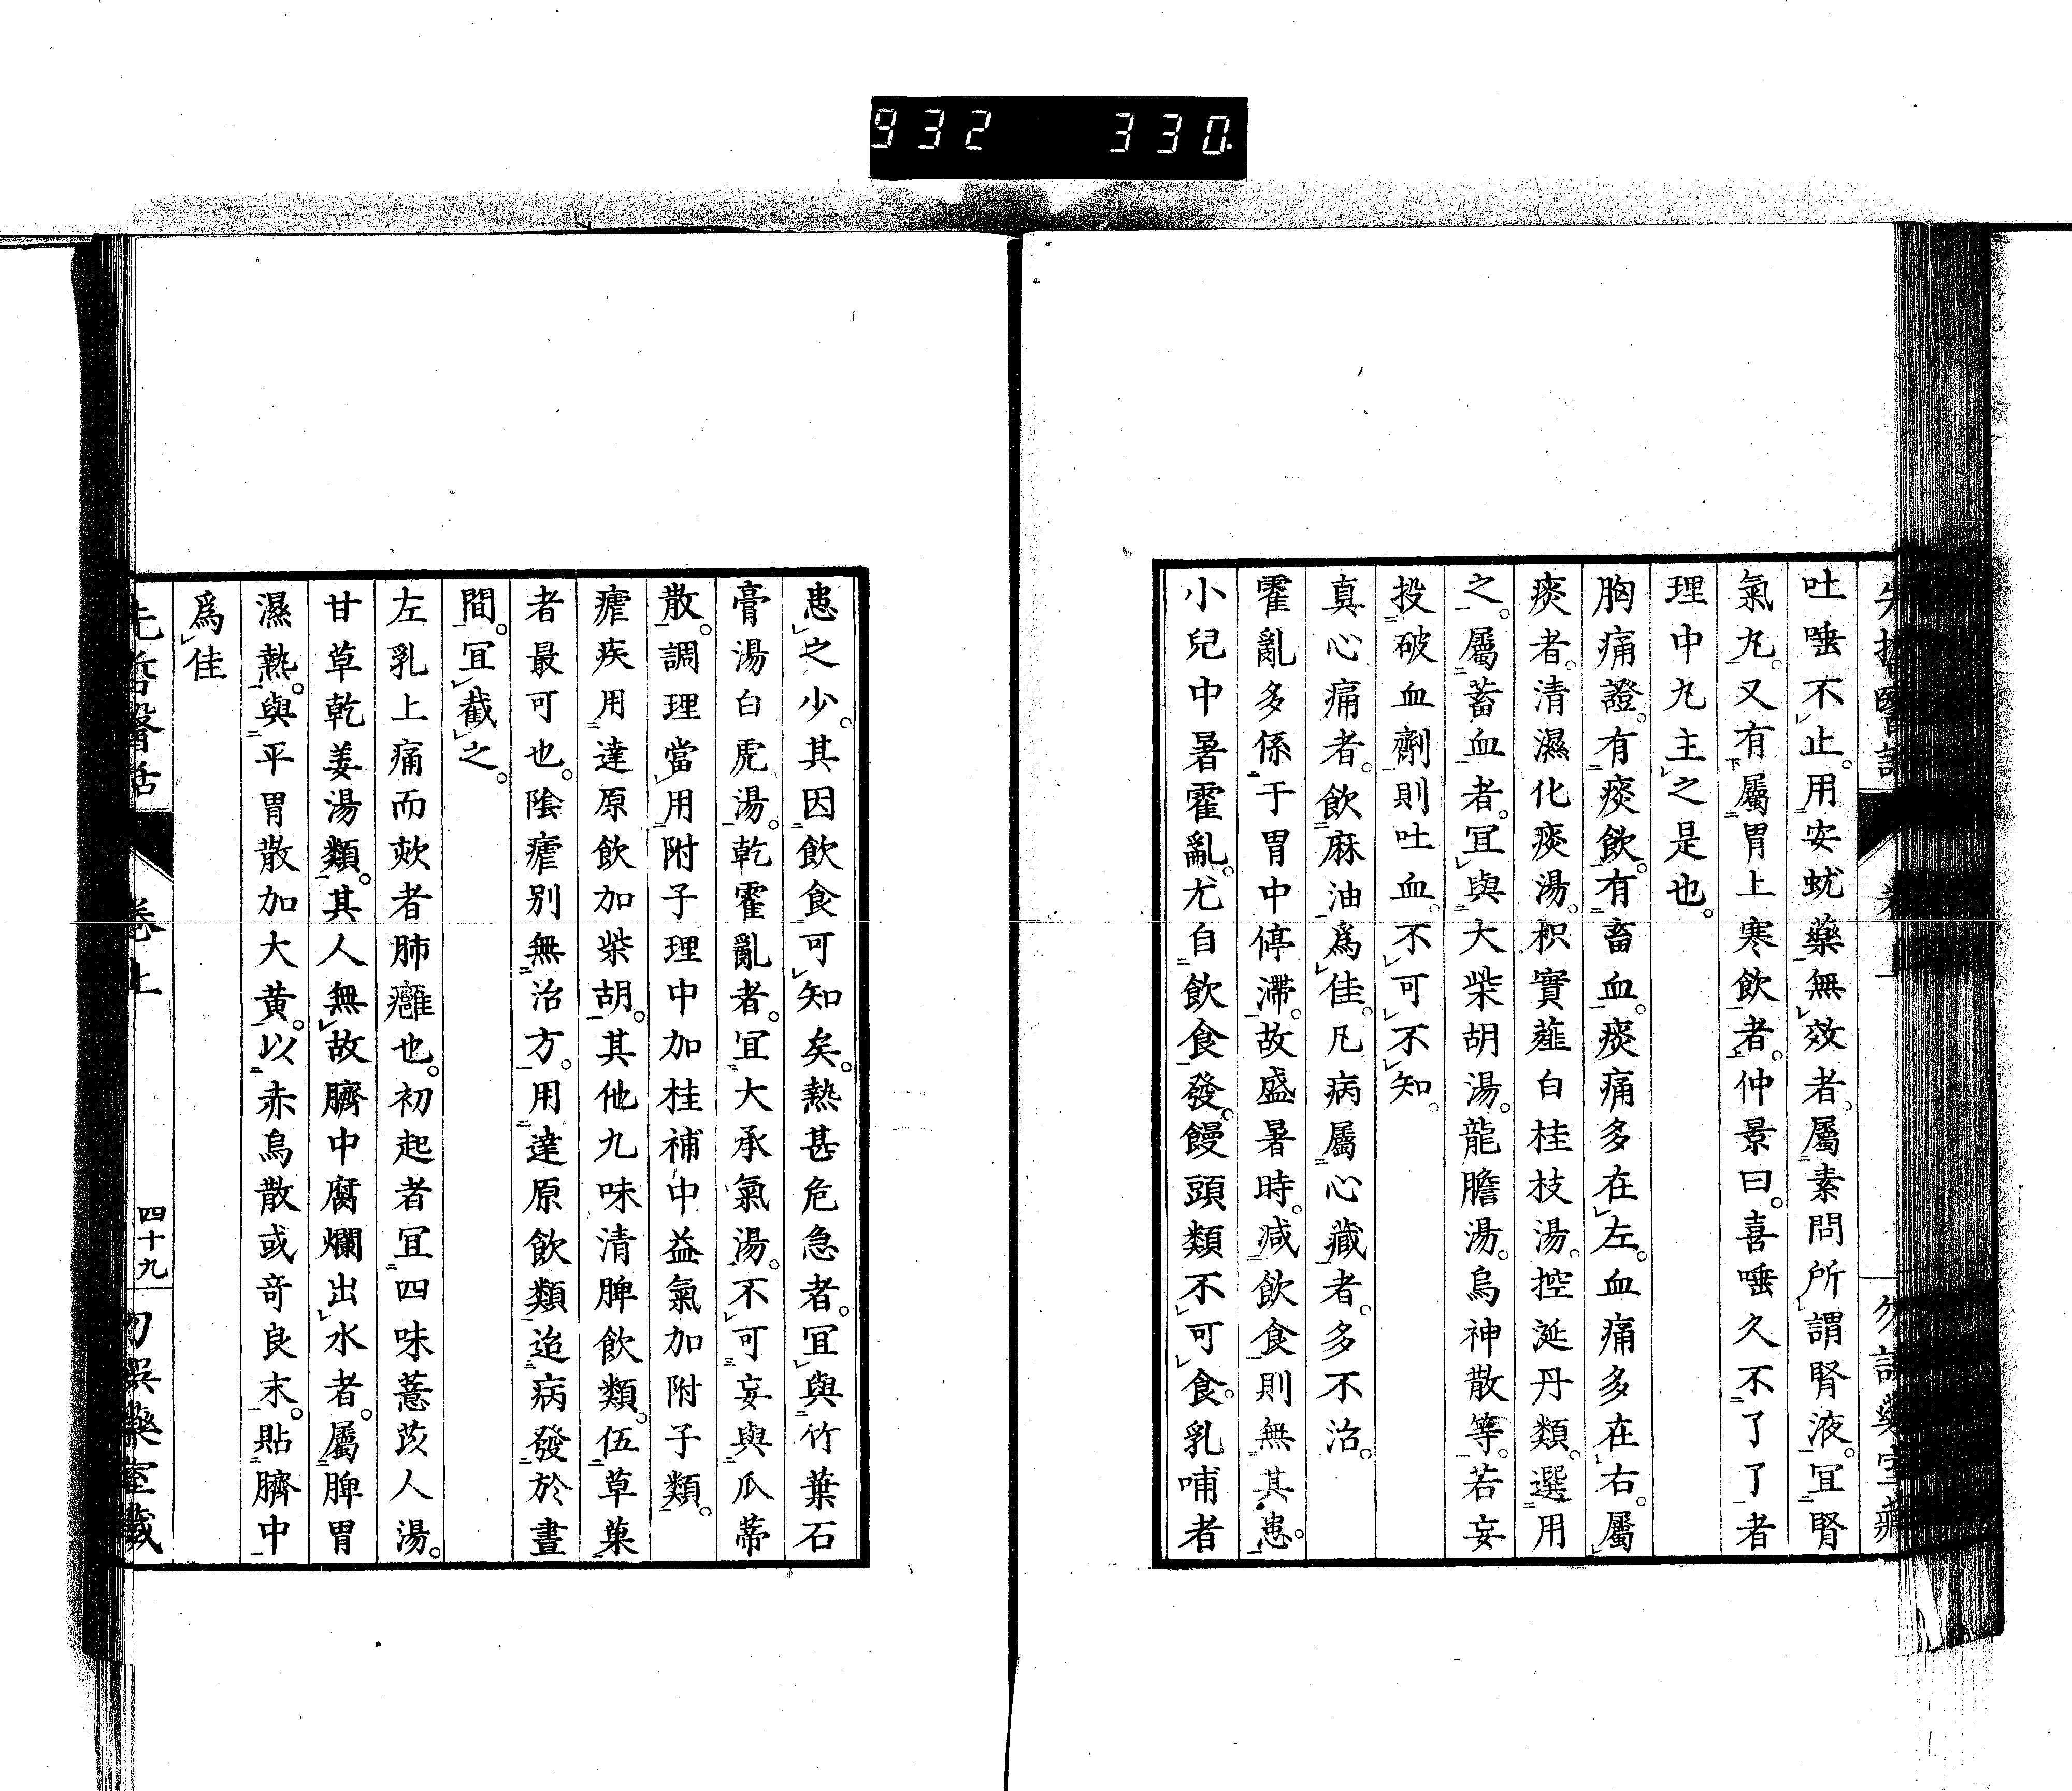 932 330
吐唾不止。用安蚘藥無效者。屬素問所謂腎液。宜腎
氣丸。又有屬胃上寒飲者。仲景曰。喜唾久不了了者
理中丸主之是也。
胸痛證。有痰飲。有畜血。痰痛多在左。血痛多在右。屬
痰者。清濕化痰湯。枳實薤白桂枝湯。控涎丹類。選用
之。屬蓄血者。宜與大柴胡湯。龍膽湯。烏神散等。若妄
投破血劑則吐血。不可不知。
真心痛者。飲麻油爲佳。凡病屬心藏者。多不治。
霍亂多係于胃中停滯。故盛暑時。減飲食則無其患。
小兒中暑霍亂。尤自飲食發。饅頭類不可食。乳哺者
患之少。其因飲食可知矣。熱甚危急者。宜與竹葉石
膏湯白虎湯。乾霍亂者。宜大承氣湯。不可妄與瓜蒂
散。調理當用附子理中加桂補中益氣加附子類。
瘧疾用達原飲加柴胡。其他九味清脾飲類。伍草菓
者最可也。陰瘧別無治方。用達原飲類。迨病發於晝
間。宜截之。
左乳上痛而欬者肺癰也。初起者宜四味薏苡人湯。
甘草乾姜湯類。其人無故臍中腐爛出水者。屬脾胃
濕熱。與平胃散加大黄。以赤烏散或奇良末。貼臍中
爲佳
先哲醫話 卷上 四十九 勿誤藥室藏